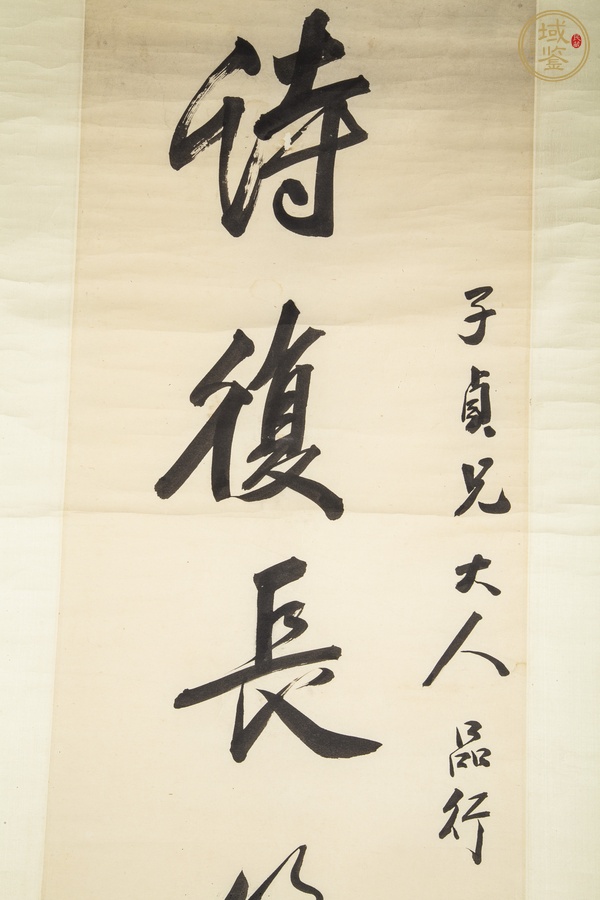 子貞兄大人品行
待復長
域鑒